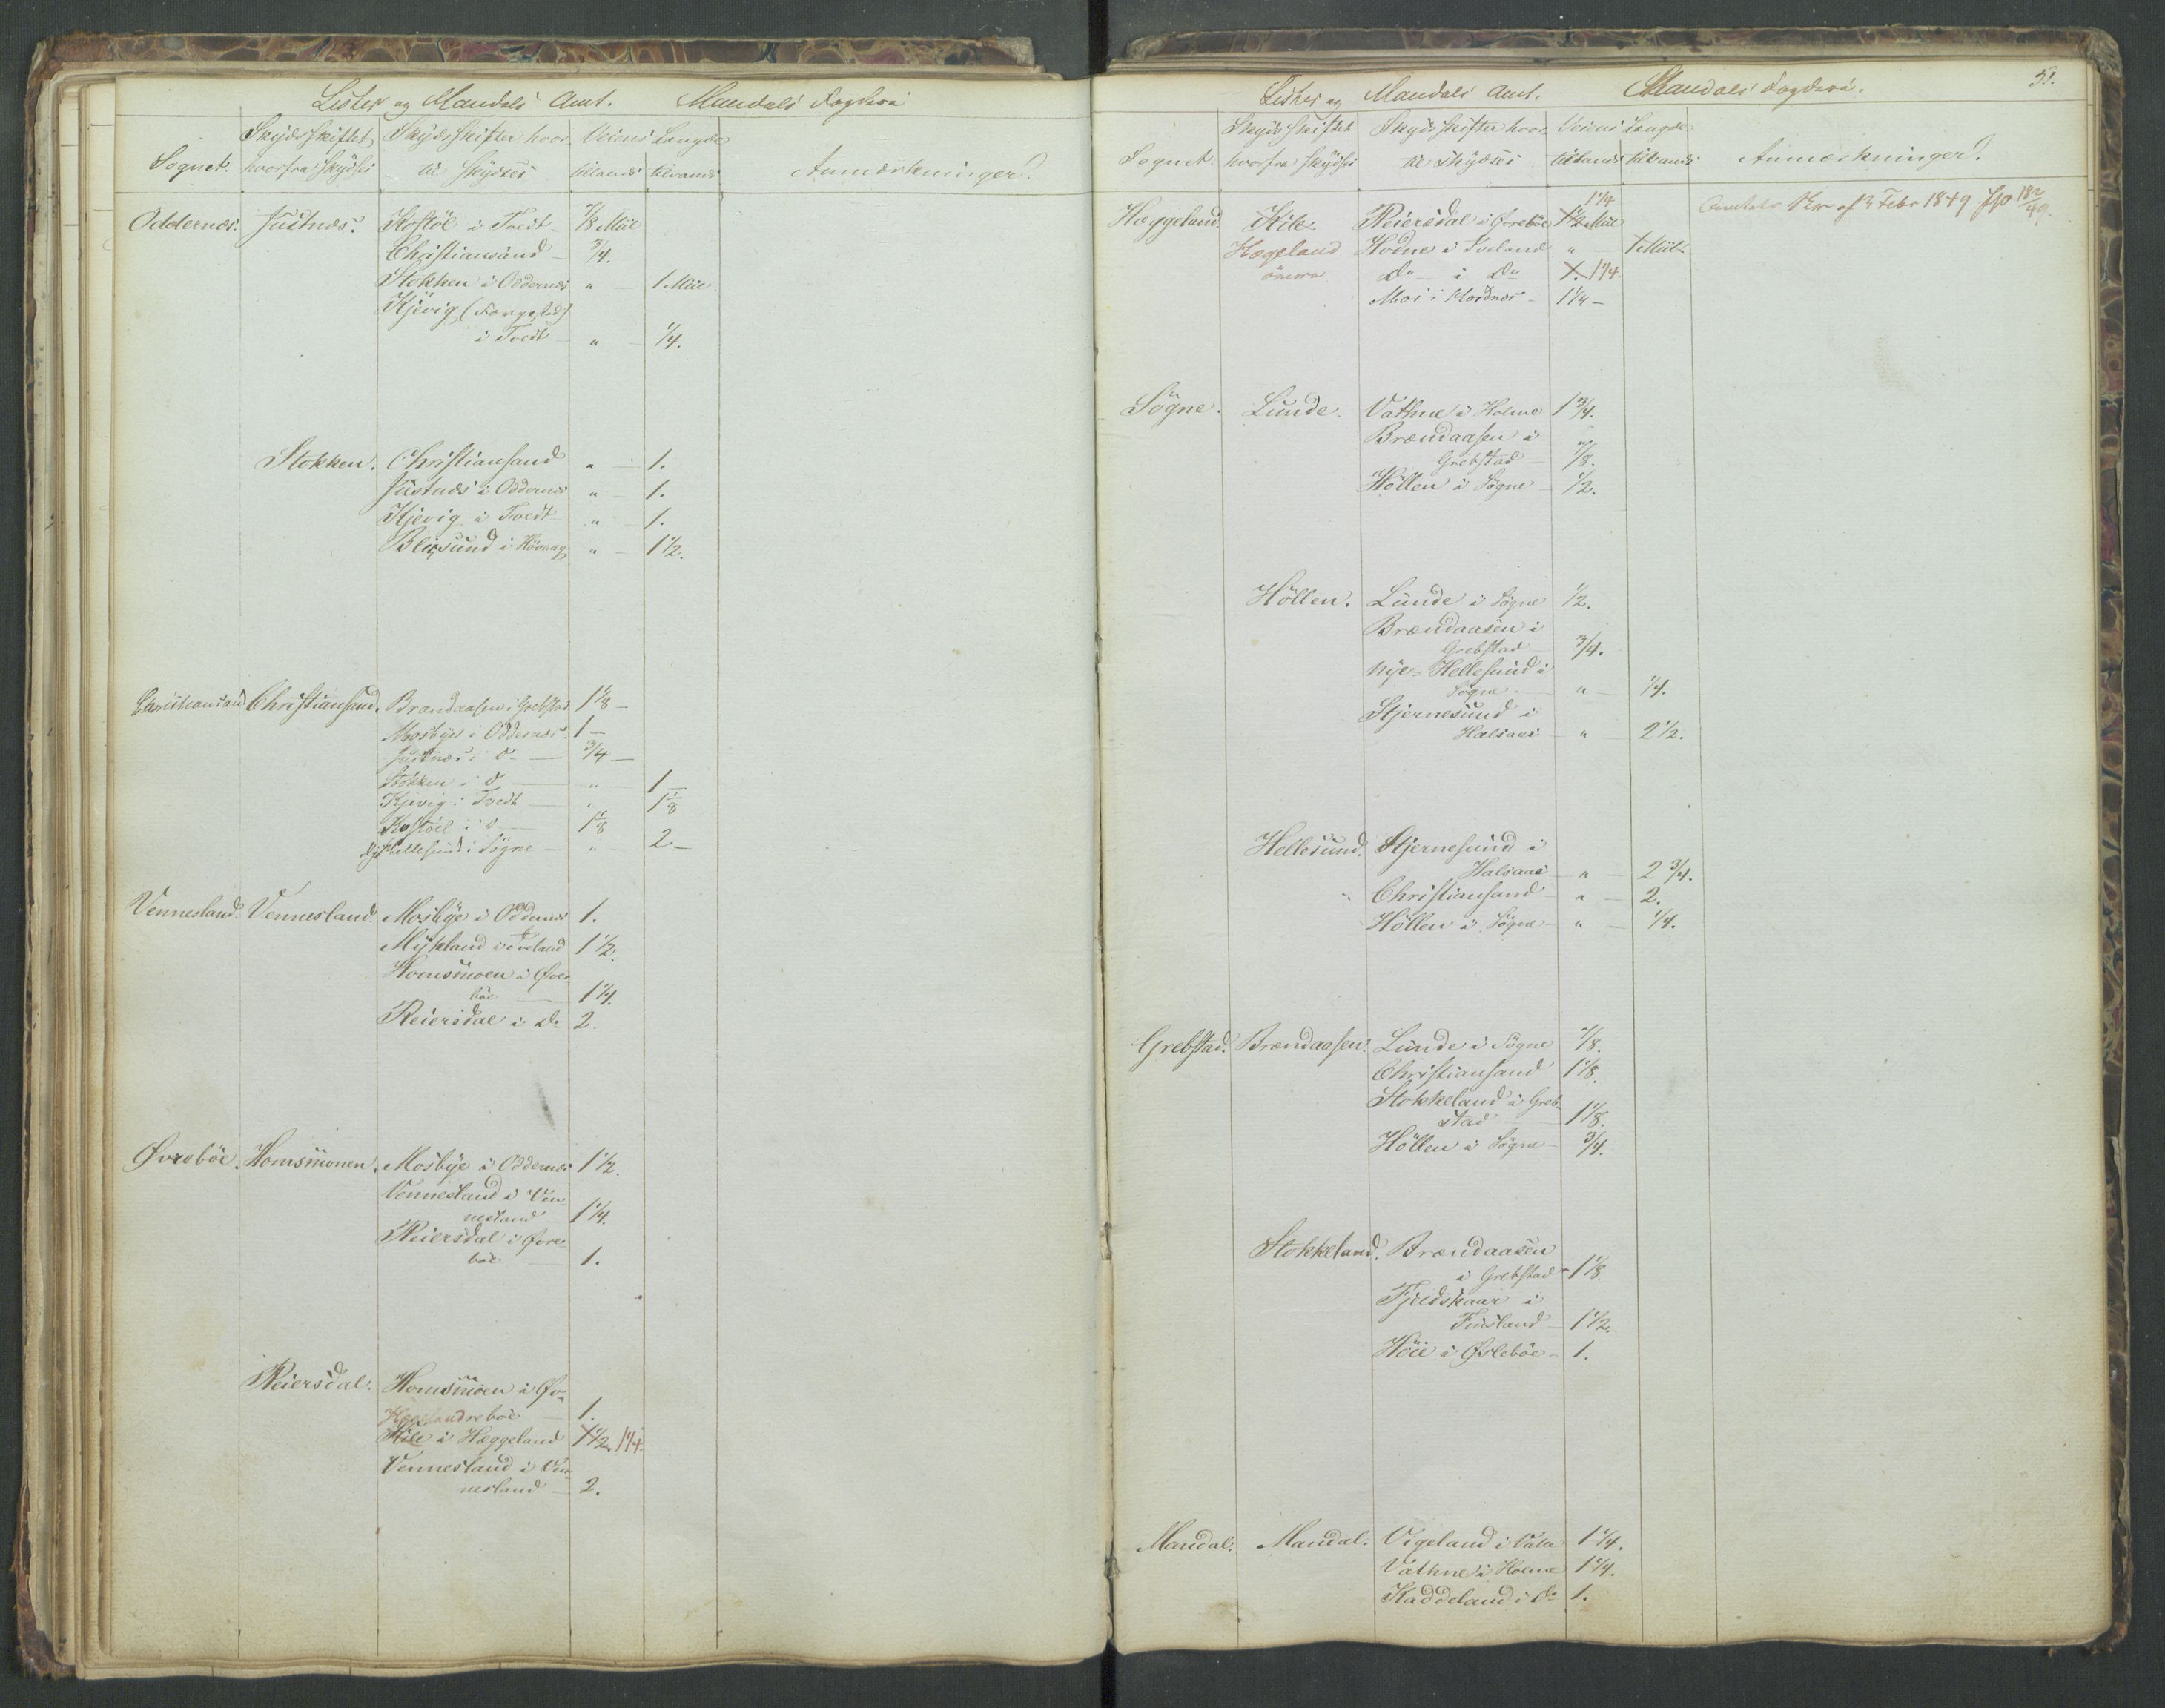 Lister og Mandals Amt. Mandals Fogderi
Sognet. Skydsskiftet hvorfra skydses Skydsskifter hvortil skydses Veiens Længde tillands tilvands Anmærkninger.
Oddernæs. Justnæs. Kostöl i Tvedt 7/8 Miil
Christiansand 3/4.
Stokken i Oddernæs " 1 Miil.
Kjevig (Færgested)
i Tvedt " 1/4.
Stokken. Christiansand " 1.
Justnæs i Oddernæs " 1.
Kjevig i Tvedt " 1.
Blixsund i Høvaag " 1 1/2.
Christiansand Christiansand. Brændaasen i Grebstad 1 1/8
Mosbye i Oddernæs 1
Justnæs i do 3/4
Stokken i do " 1
Kjevig i Tvedt " 1 1/8
Kostöel i do 1 1/8
Nye Hellesund i Sögne " 2
Vennesland. Vennesland. Mosbye i Oddernæs 1.
Mykland i Iveland 1 1/2.
Homsmoen i Øvre-
böe 1 1/4.
Reiersdal i do 2.
Øvreböe. Homsmonen. Mosbye i Oddernæs 1 1/2.
Vennesland i Ven-
nesland 1 1/4.
Reiersdal i Øvre-
böe 1.
Reiersdal. Homsmoen i Øv-
Hægeland reböe 1.
Kile i Hæggeland 1 1/2. 1 1/4
Vennesland i Ven-
nesland 2.
51.
Lister og Mandals Amt. Mandals Fogderi.
Sognet. Skydsskiftet hvorfra skydses Skydsskifter hvortil skydses Veiens Længde tillands tilvands Anmærkninger.
1 1/4
Hæggeland. Kile. Reiersdal i Øvreböe 1 1/2 Miil Amtets Skr af 3 Febr 1849
Hægeland Hodne i Iveland " 1 Miil
övre Do i Do 1. 1 1/4
Moi i Hordnæs 1 1/4
Sögne. Lunde. Vathne i Holme 1 3/4.
Brændaasen i
Grebstad 7/8.
Höllen i Sögne 1/2.
Höllen. Lunde i Sögne 1/2.
Brændaasen i
Grebstad 3/4.
Nye-Hellesund i
Sögne " 1/4.
Stjernesund i
Halsaae " 2 1/2.
Hellesund. Stjernesund i
Halsaae " 2 3/4.
Christiansand " 2.
Höllen i Sögne " 1/4.
Grebstad. Brændaasen. Lunde i Sögne 7/8.
Christiansand 1 1/8.
Stokkeland i Greb-
stad 1 1/8.
Höllen i Sögne 3/4.
Stokkeland. Brændaasen
i Grebstad 1 1/8.
Fjeldskaar i
Finsland 1 1/2.
Höie i Øslebøe 1.
Mandal. Mandal. Vigeland i Valse 1 1/4.
Vathne i Holme 1 1/4.
Kaddeland i do 1.